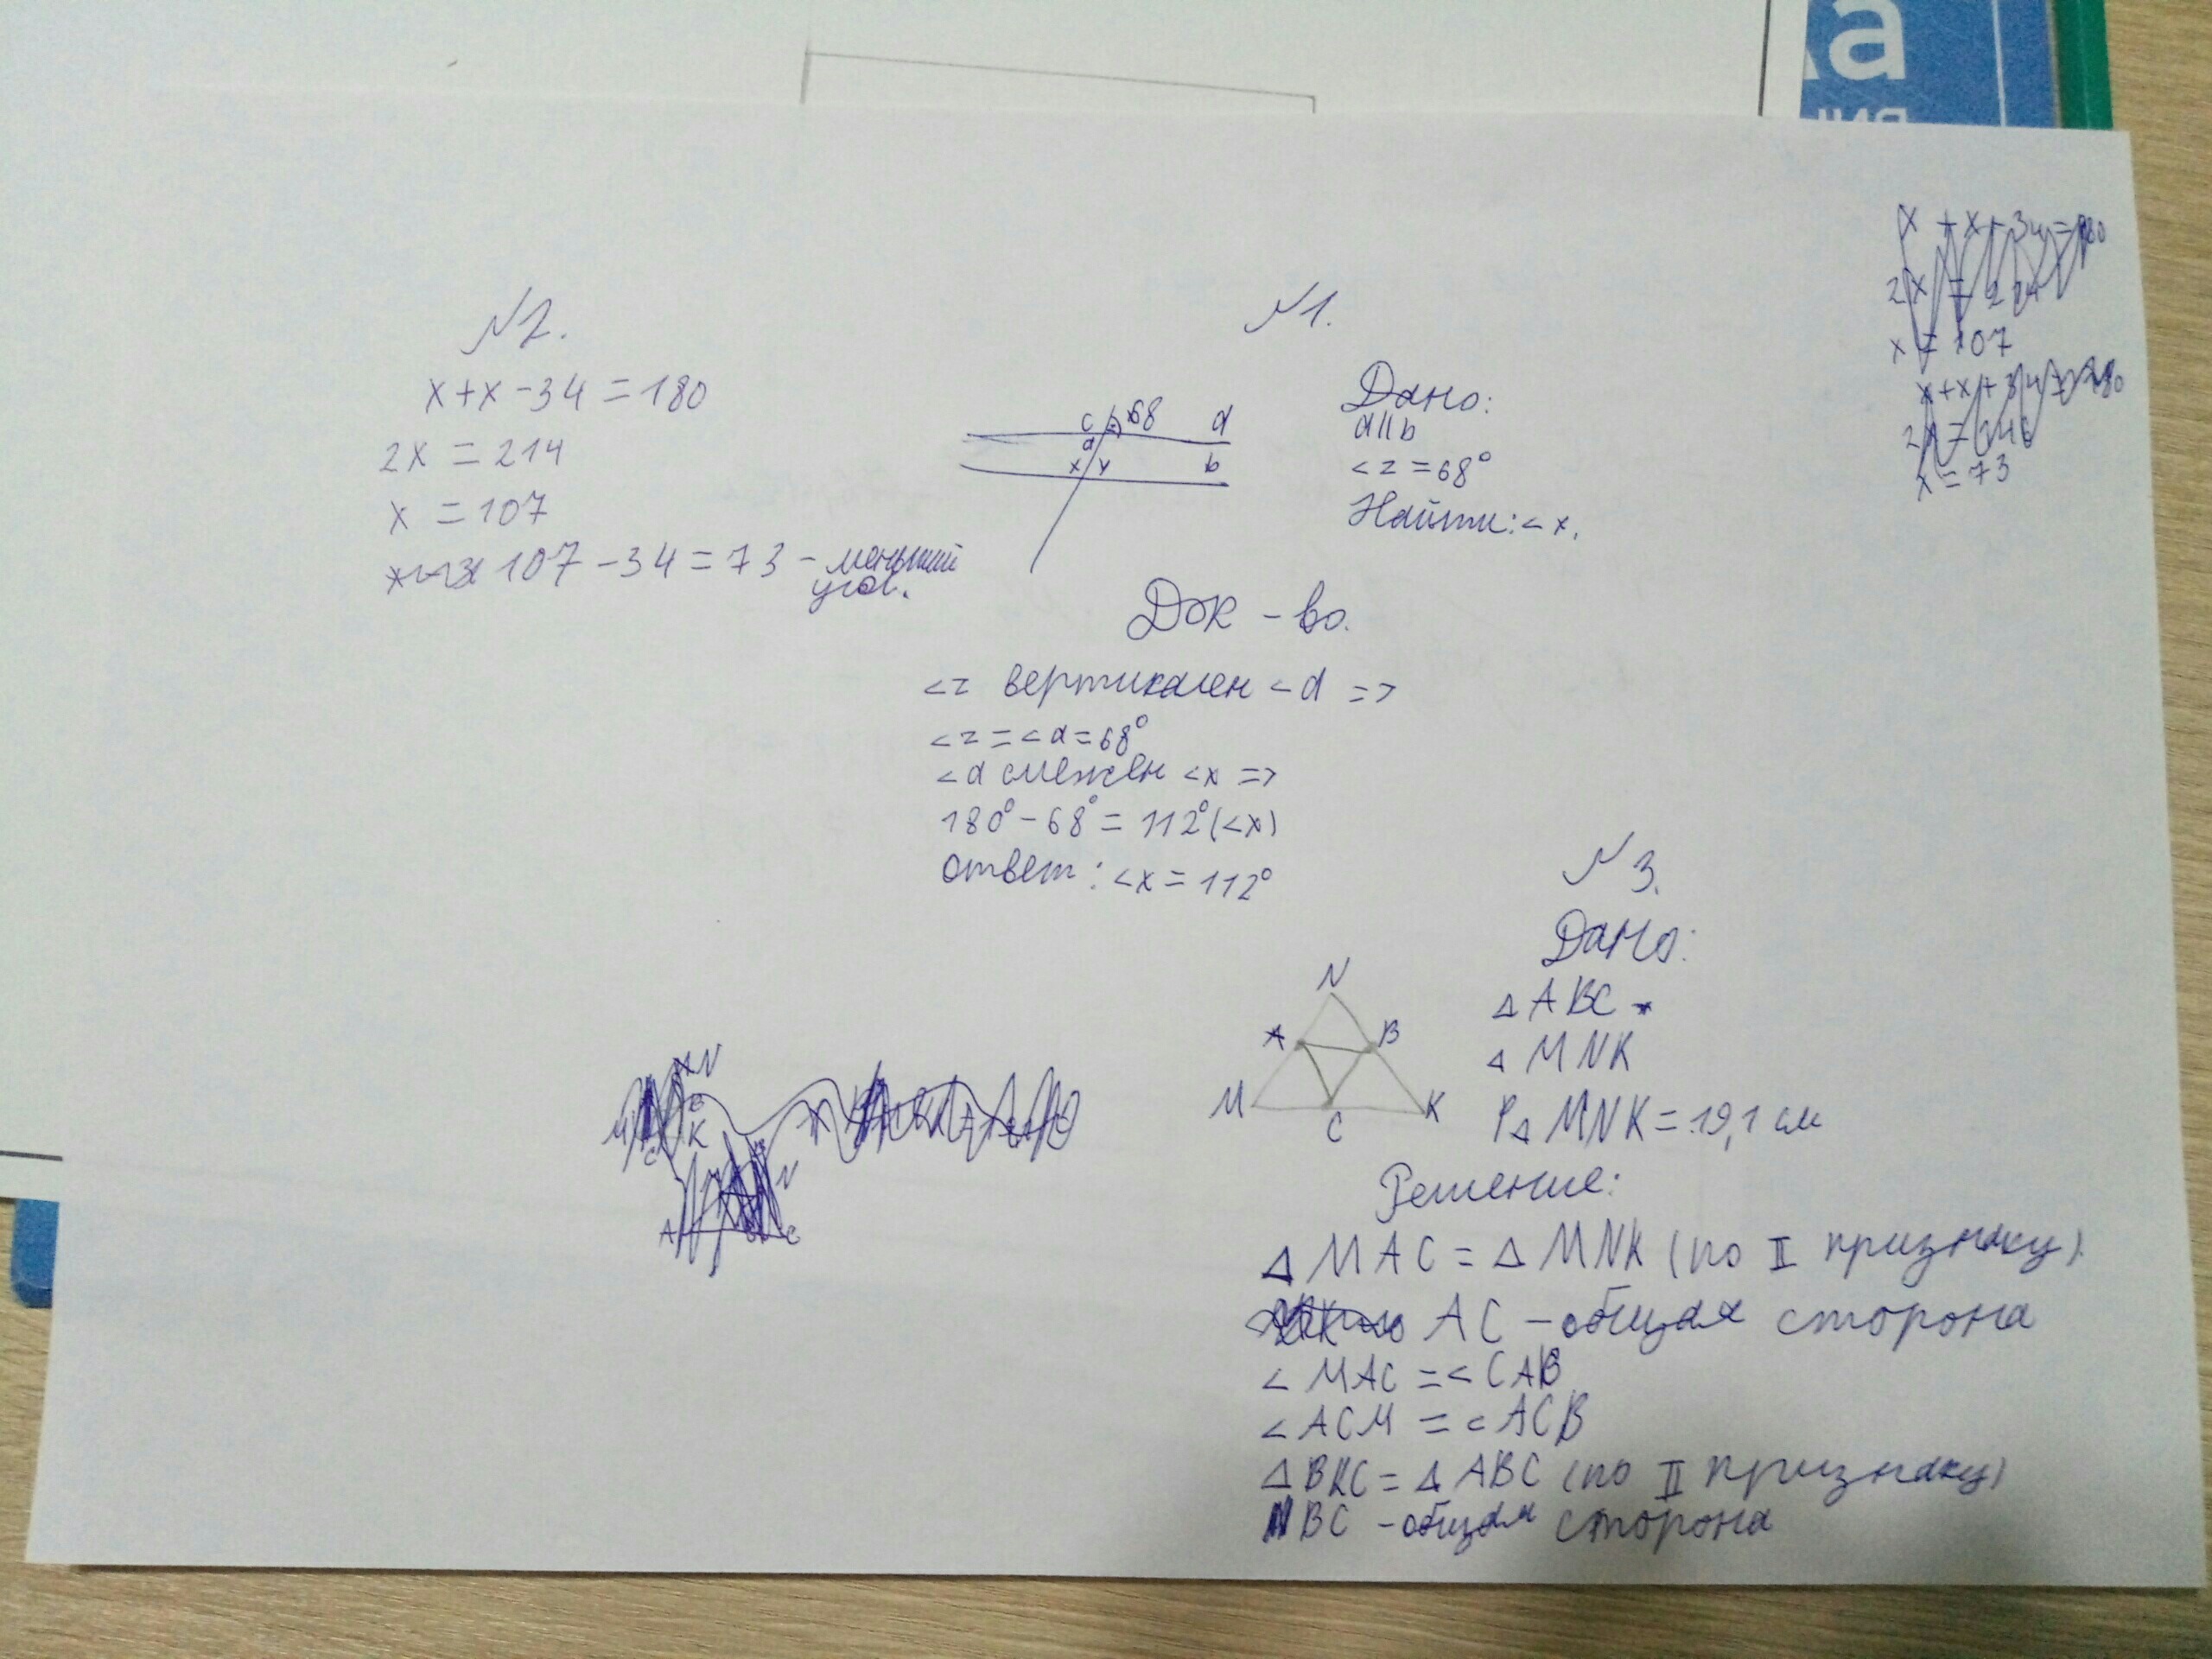 №2.
x+x-34=180
2x=214
x=107
107-34=73-меньший
угол.
№1.
c 68 a
x y b
Дано:
a||b
<z=68°
Найти:<x.
Док-во.
<z вертикален <d =>
<z=<d=68°
<d смежен <x =>
180°-68°=112°(<x)
ответ:<x=112°
x+x+34=180
x=107
x+x+34=180
x=73
№3.
Дано:
△ABC
△MNK
P△MNK=19,1 см
N
A B
M C K
Решение:
△MAC=△MNK(по II признаку)
AC-общая сторона
<MAC=<CAB
<ACM=<ACB
△BKC=△ABC(по II признаку)
BC-общая сторона
N
K
A
N
а
ния